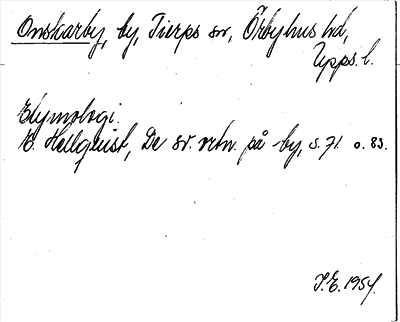 Onskarby, by, Tierps sn, Örbyhus hd,
Upps. l.
Etymologi.
E. Hellquist, De sv. ortn. på -by, s. 71 o. 83.
I.E. 1954.